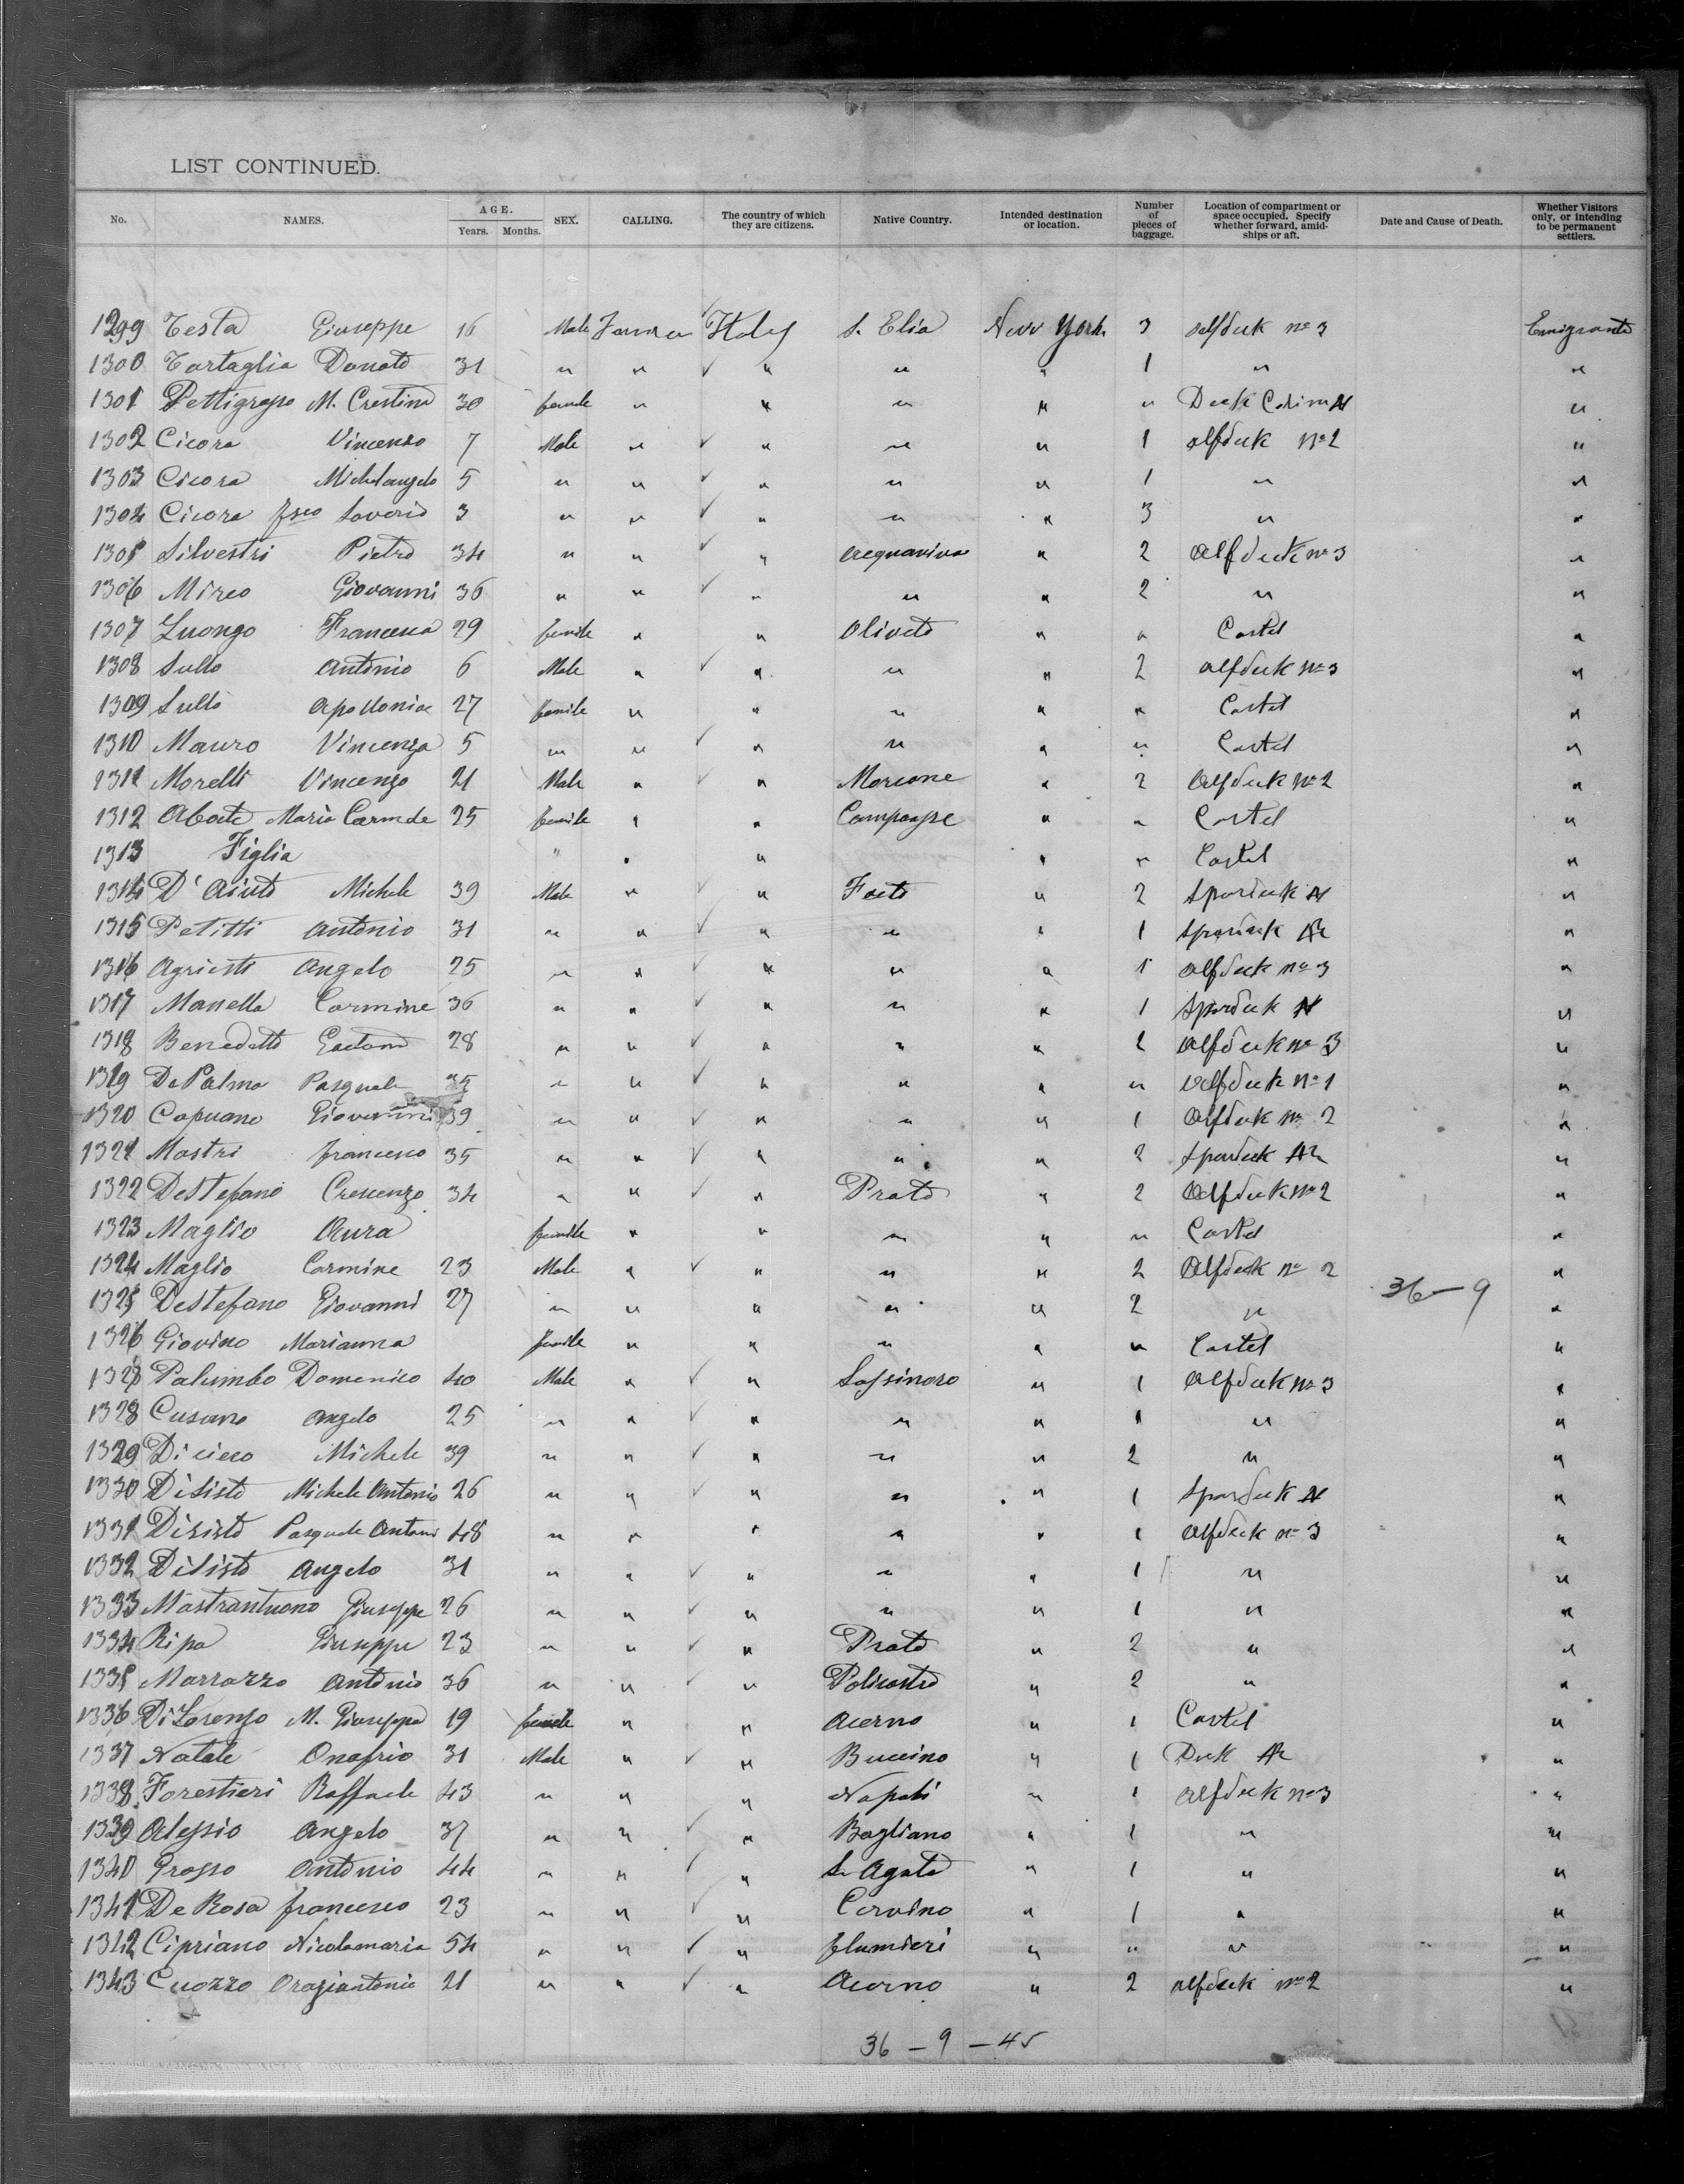 LIST CONTINUED.
No. NAMES. AGE. Years. Months. SEX. CALLING. The country of which they are citizens. Native Country. Intended destination or location. Number of pieces of baggage. Location of compartment or space occupied. Specify whether forward, amidships or aft. Date and Cause of Death. Whether Visitors only, or intending to be permanent settlers.
1299 Testa Giuseppe 16 Male Farmer Italy S. Elia New York 3 alfdeek no 3 Emigrante
1300 Tartaglia Donato 31 " " ✓ " " " 1 " "
1301 Pettigrosso M. Crestina 30 female " " " " " Deek "
1302 Cicora Vincenzo 7 Male " ✓ " " " 1 alfdeek no 2 "
1303 Cicora Michelangelo 5 " " ✓ " " " 1 " "
1304 Cicora fsco Saverio 3 " " ✓ " " " 3 " "
1305 Silvestri Pietro 34 " " ✓ " acquaviva " 2 alfdeek no 3 "
1306 Mirco Giovanni 36 " " ✓ " " " 2 " "
1307 Luongo Francesca 29 female " " Oliveto " " Castel "
1308 Sullo Antonio 6 Male " ✓ " " " 2 alfdeek no 3 "
1309 Sullo Apollonia 27 female " " " " " Castel "
1310 Mauro Vincenza 5 " " ✓ " " " " Castel "
1311 Morelli Vincenzo 21 Male " ✓ " Morcone " 2 alfdeek no 2 "
1312 Abate Maria Carmela 25 female " " Campagne " " Castel "
1313 Figlia " " " " " Castel "
1314 D'Aiuto Michele 39 Male " ✓ " Faeto " 2 Spardeek "
1315 Petitti Antonio 31 " " ✓ " " " 1 Spardeek "
1316 Agriesti Angelo 25 " " ✓ " " " 1 alfdeek no 3 "
1317 Manella Carmine 36 " " ✓ " " " 1 Spardeek "
1318 Benedetto Gaetano 28 " " ✓ " " " 2 alfdeek no 3 "
1319 De Palma Pasquale 35 " " ✓ " " " " alfdeek no 1 "
1320 Capuano Giovanni 39 " " ✓ " " " 1 alfdeek no 2 "
1321 Mastri francesco 35 " " ✓ " " " 2 Spardeek "
1322 DeStefano Crescenzo 34 " " ✓ " Prato " 2 alfdeek no 2 "
1323 Maglio Aura female " " " " " Castel "
1324 Maglio Carmine 23 Male " ✓ " " " 2 alfdeek no 2 "
1325 DeStefano Giovanni 27 " " " " " 2 " 36-9 "
1326 Giovino Marianna female " " " " " Castel "
1327 Palumbo Domenico 40 Male " ✓ " Sassinoro " 1 alfdeek no 3 "
1328 Cusano Angelo 25 " " ✓ " " " 1 " "
1329 Di cicco Michele 39 " " ✓ " " " 2 " "
1330 DiSisto Michele Antonio 26 " " ✓ " " " 1 Spardeek "
1331 Disisto Pasquale Antoni 48 " " " " " 1 alfdeek no 3 "
1332 DiSisto Angelo 31 " " ✓ " " " 1 " "
1333 Mastrantuono Giuseppe 26 " " ✓ " " " 1 " "
1334 Ripa Giuseppe 23 " " ✓ " Prato " 2 " "
1335 Marrazzo Antonio 36 " " ✓ " Policastro " 2 " "
1336 DiLorenzo M. Giuseppa 19 female " " Acerno " 1 Castel "
1337 Natale Onofrio 31 Male " ✓ " Buccino " 1 Deek "
1338 Forestieri Raffaele 43 " " " Napoli " 1 alfdeek no 3 "
1339 Alessio Angelo 37 " " ✓ " Bagliano " 1 " "
1340 Grosso Antonio 44 " " ✓ " S. Agata " 1 " "
1341 De Rosa francesco 23 " " ✓ " Cervino " 1 " "
1342 Cipriano Nicolamaria 54 " " ✓ " flumieri " " " "
1343 Cuozzo Oraziantonio 21 " " ✓ " Acerno " 2 alfdeek no 2 "
36 - 9 - 45